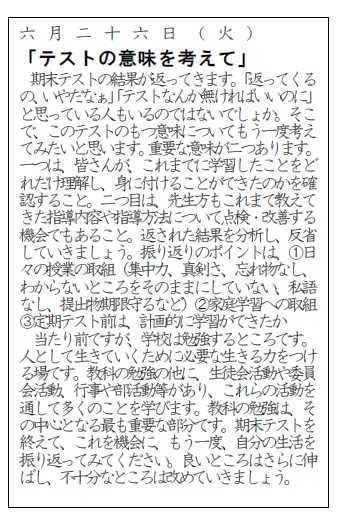 六月二十六日（火）
「テストの意味を考えて」
　期末テストの結果が返ってきます。「返ってくる
の、いやだなぁ」「テストなんか無ければいいのに」
と思っている人もいるのではないでしょか。そこ
で、このテストのもつ意味についてもう一度考え
てみたいと思います。重要な意味が二つあります。
一つは、皆さんが、これまでに学習したことをど
れだけ理解し、身に付けることができたのかを確
認すること。二つ目は、先生方もこれまで教えて
きた指導内容や指導方法について点検・改善する
機会でもあること。返された結果を分析し、反省
していきましょう。振り返りのポイントは、①日
々の授業の取組（集中力、真剣さ、忘れ物なし、
わからないところをそのままにしていない、私語
なし、提出物期限守るなど）②家庭学習への取組
③定期テスト前は、計画的に学習ができたか
　当たり前ですが、学校は勉強するところです。
人として生きていくために必要な生きる力をつけ
る場です。教科の勉強の他に、生徒会活動や委員
会活動、行事や部活動等があり、これらの活動を
通して多くのことを学びます。教科の勉強は、そ
の中心となる最も重要な部分です。期末テストを
終えて、これを機会に、もう一度、自分の生活を
振り返ってみてください。良いところはさらに伸
ばし、不十分なところは改めていきましょう。